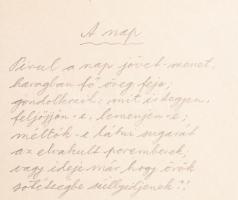 A nap
Pirul a nap jövet-menet,
haragban fő öreg feje,
gondolkozik, mit is tegyen,
feljöjjön-e, lemenjen-e;
méltók-e látni sugarát
az elvakult peremberek,
vagy ideje már, hogy örök
sötétségbe süllyedjenek?!